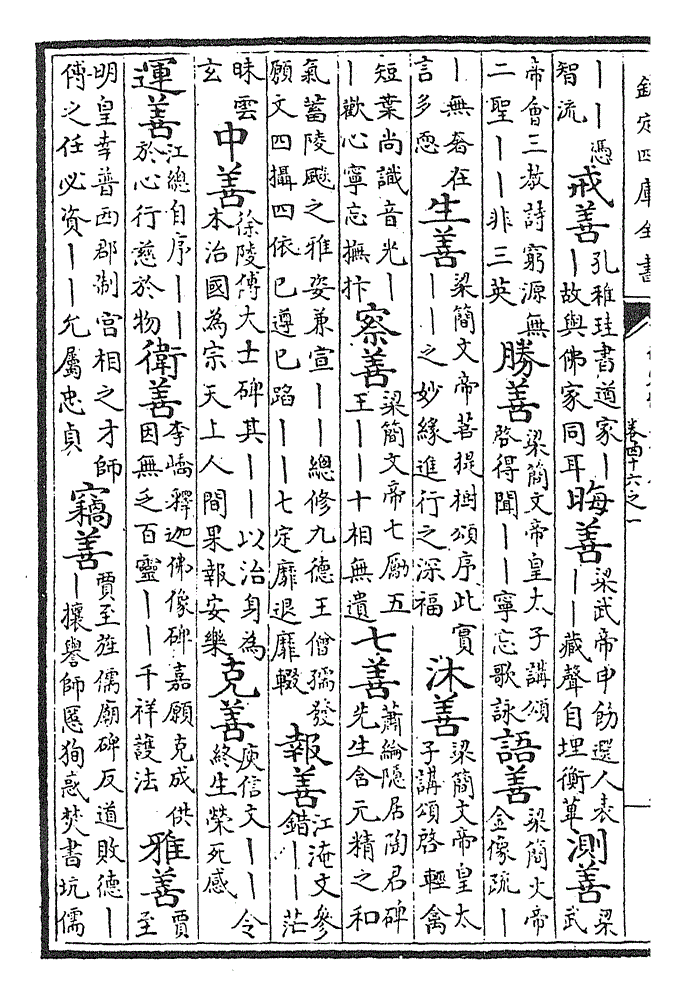 欽定四庫全書
卷四十六之一
——憑
智流
戒善
孔稚珪書道家—
—故與佛家同耳
晦善
梁武帝申飭選人表
——藏聲自埋衡蓽
測善
梁
武
帝會三教詩窮源無
二聖——非三英
勝善
梁簡文帝皇太子講頌
啓得聞——寧忘歌詠
語善
梁簡文帝
金像疏—
—無奢在
言多愆
生善
梁簡文帝菩提樹頌序此實
——之妙緣進行之深福
沐善
梁簡文帝皇太
子講頌啓輕禽
短葉尚識音光—
—歡心寧忘撫抃
察善
梁簡文帝七勵五
王——十相無遺
七善
蕭綸隱居陶君碑
先生含元精之和
氣蓄陵颷之雅姿兼宣——總修九德王僧孺發
願文四攝四依已遵已蹈——七定靡退靡輟
報善
江淹文參
錯——茫
昧雲
玄
中善
徐陵傅大士碑其——以治身為
本治國為宗天上人間果報安樂
克善
庾信文——令
終生榮死感
運善
江總自序——
於心行慈於物
衛善
李嶠釋迦佛像碑嘉願克成供
因無乏百靈——千祥護法
雅善
賈
至
明皇幸普西郡制宮相之才師
傅之任必資——允屬忠貞
竊善
賈至旌儒廟碑反道敗德—
—攘譽師慝狥惑焚書坑儒